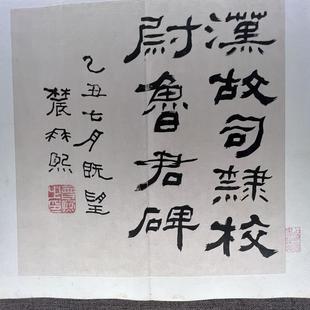 漢故司隸校
尉魯君碑
乙丑七月既望